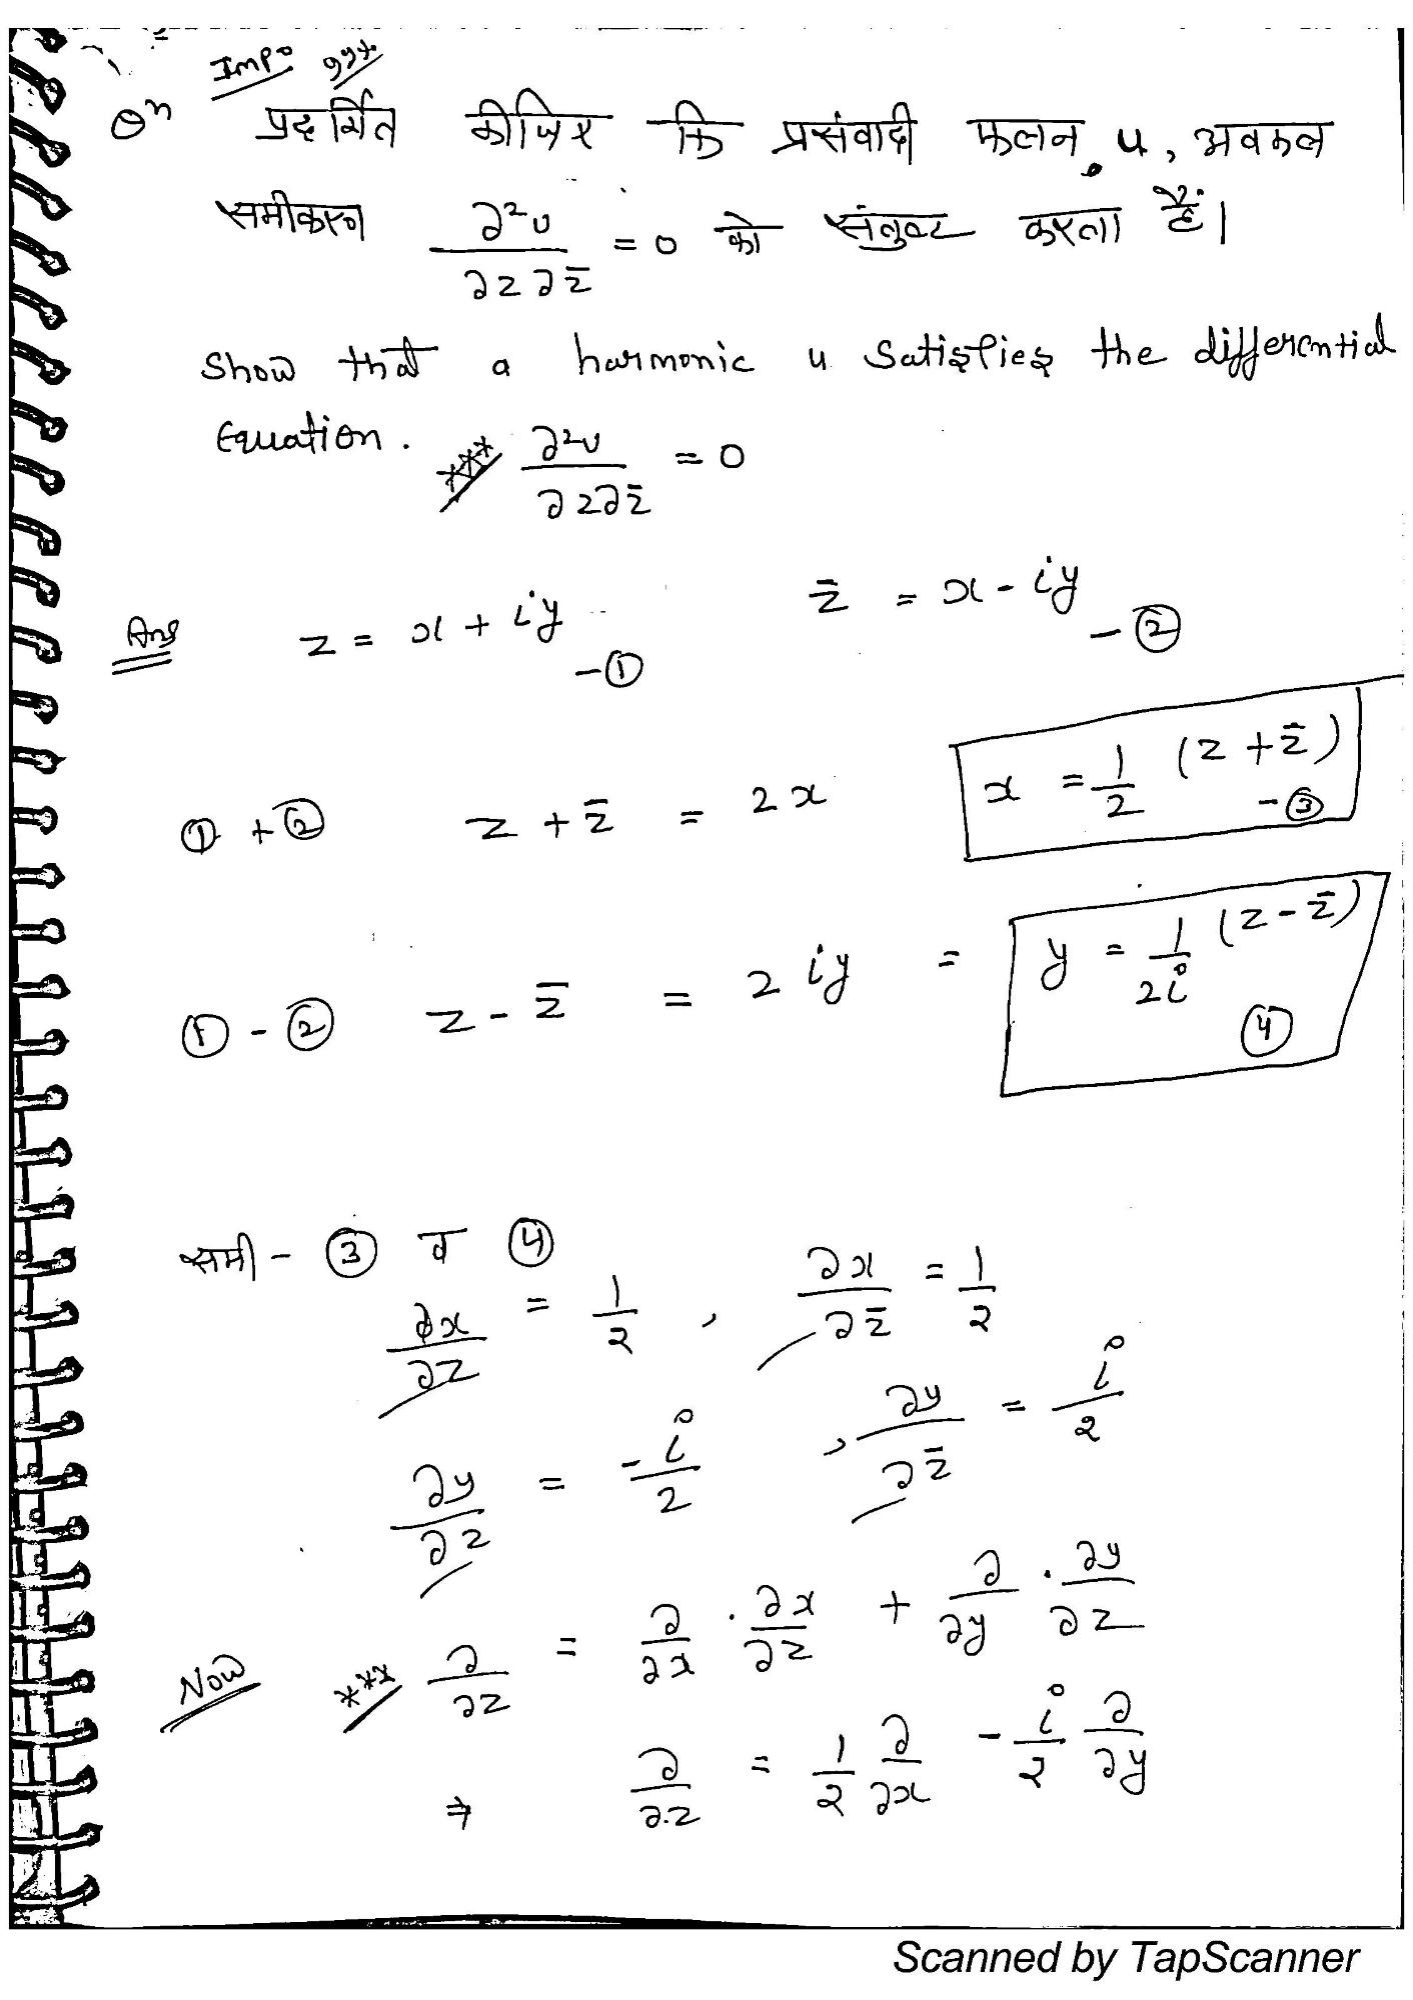 Impo 99%
Qn प्रदर्शित कीजिए कि प्रसंवादी फलन u, अवकल
समीकरण ∂²u/∂z∂z̄ = 0 को संतुष्ट करता है।
Show that a harmonic u Satisfies the differential
Equation. *** ∂²u/∂z∂z̄ = 0
Ans z = x + iy -① z̄ = x - iy -②
① + ② z + z̄ = 2x x = 1/2 (z + z̄) -③
① - ② z - z̄ = 2iy = y = 1/2i (z - z̄) ④
समी - ③ व ④
∂x/∂z = 1/2 , ∂x/∂z̄ = 1/2
∂y/∂z = -i/2 , ∂y/∂z̄ = i/2
Now *** ∂/∂z = ∂/∂x · ∂x/∂z + ∂/∂y · ∂y/∂z
⇒ ∂/∂z = 1/2 ∂/∂x - i/2 ∂/∂y
Scanned by TapScanner